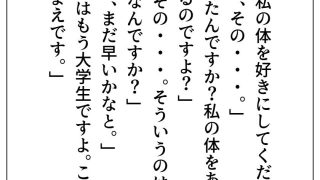 私の体を好きにしてくだ
、その・・・。」
たんですか？私の体をあ
るのですよ？」
その・・・。そういうのは
なんですか？」
、まだ早いかなと。」
はもう大学生ですよ。こ
まえです。」